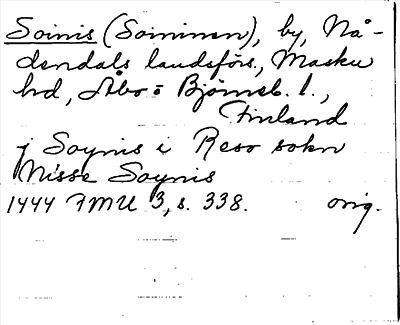 Soinis (Soininen), by, Nå-
dendals landsförs., Masku
hd, Åbo o Björneb. l.,
Finland
j Soynis i Reso sokn
Nisse Soynis
1444 FMU 3, s. 338. orig.